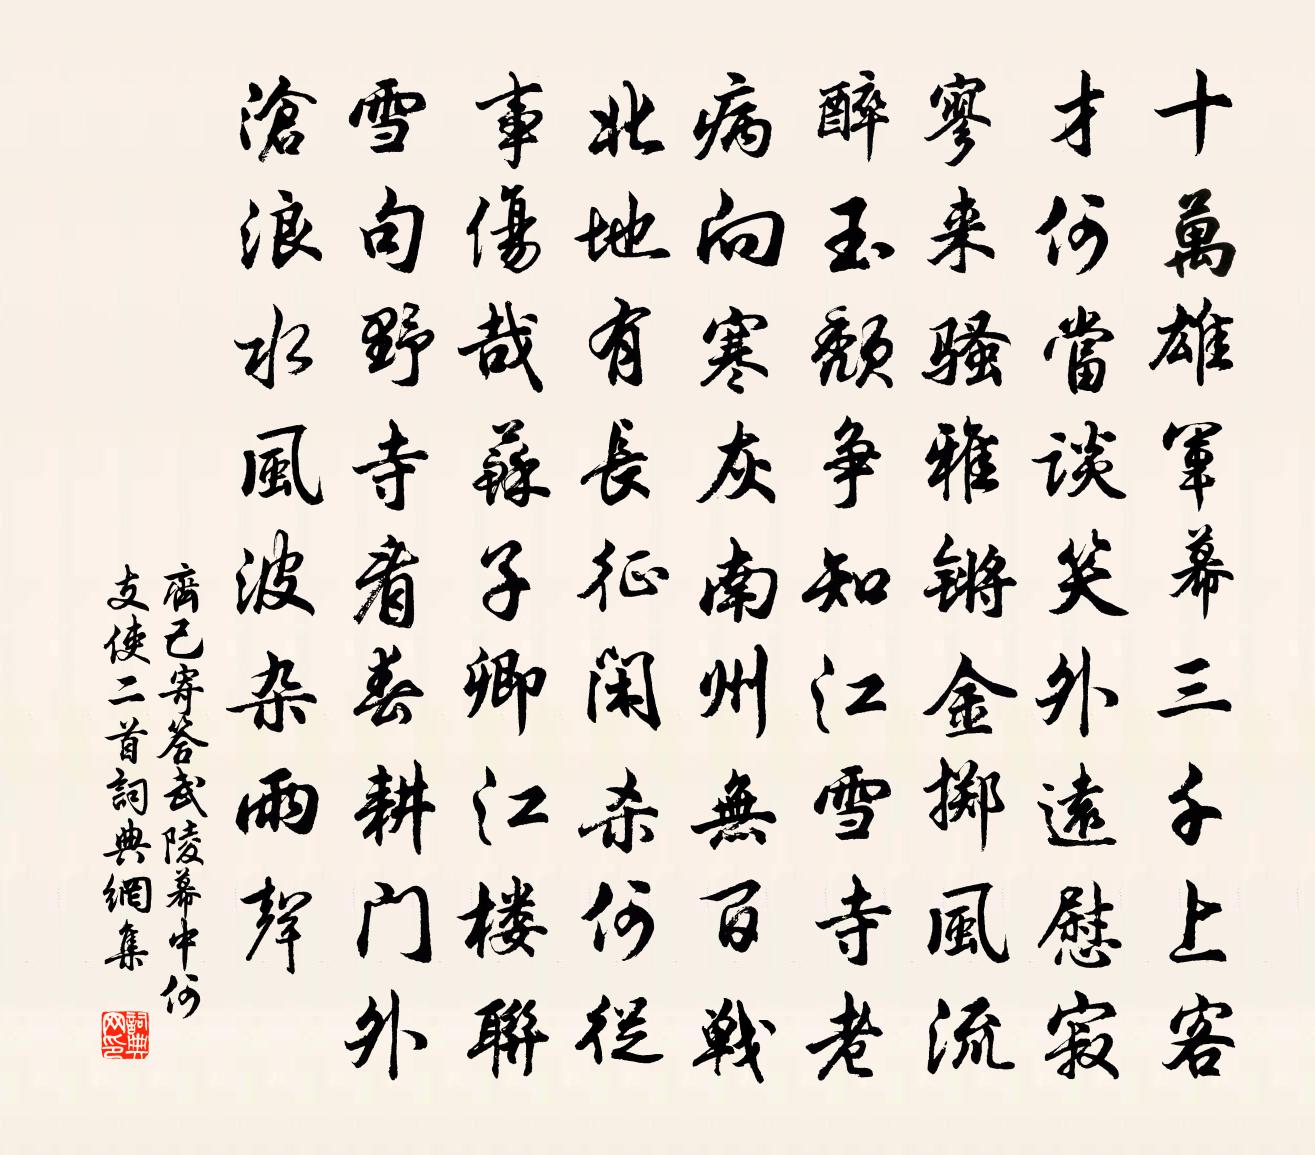 十萬雄軍幕三千上客
才何當談笑外遠慰寂
寥来骚雅锵金掷風流
醉玉頽争知江雪寺老
病向寒灰南州無百戦
北地有長征閑杀何從
事傷哉蘇子卿江楼聯
雪句野寺看春耕门外
滄浪水風波杂雨聲
齊己寄答武陵幕中何
支使二首詞典網集
詞典网印